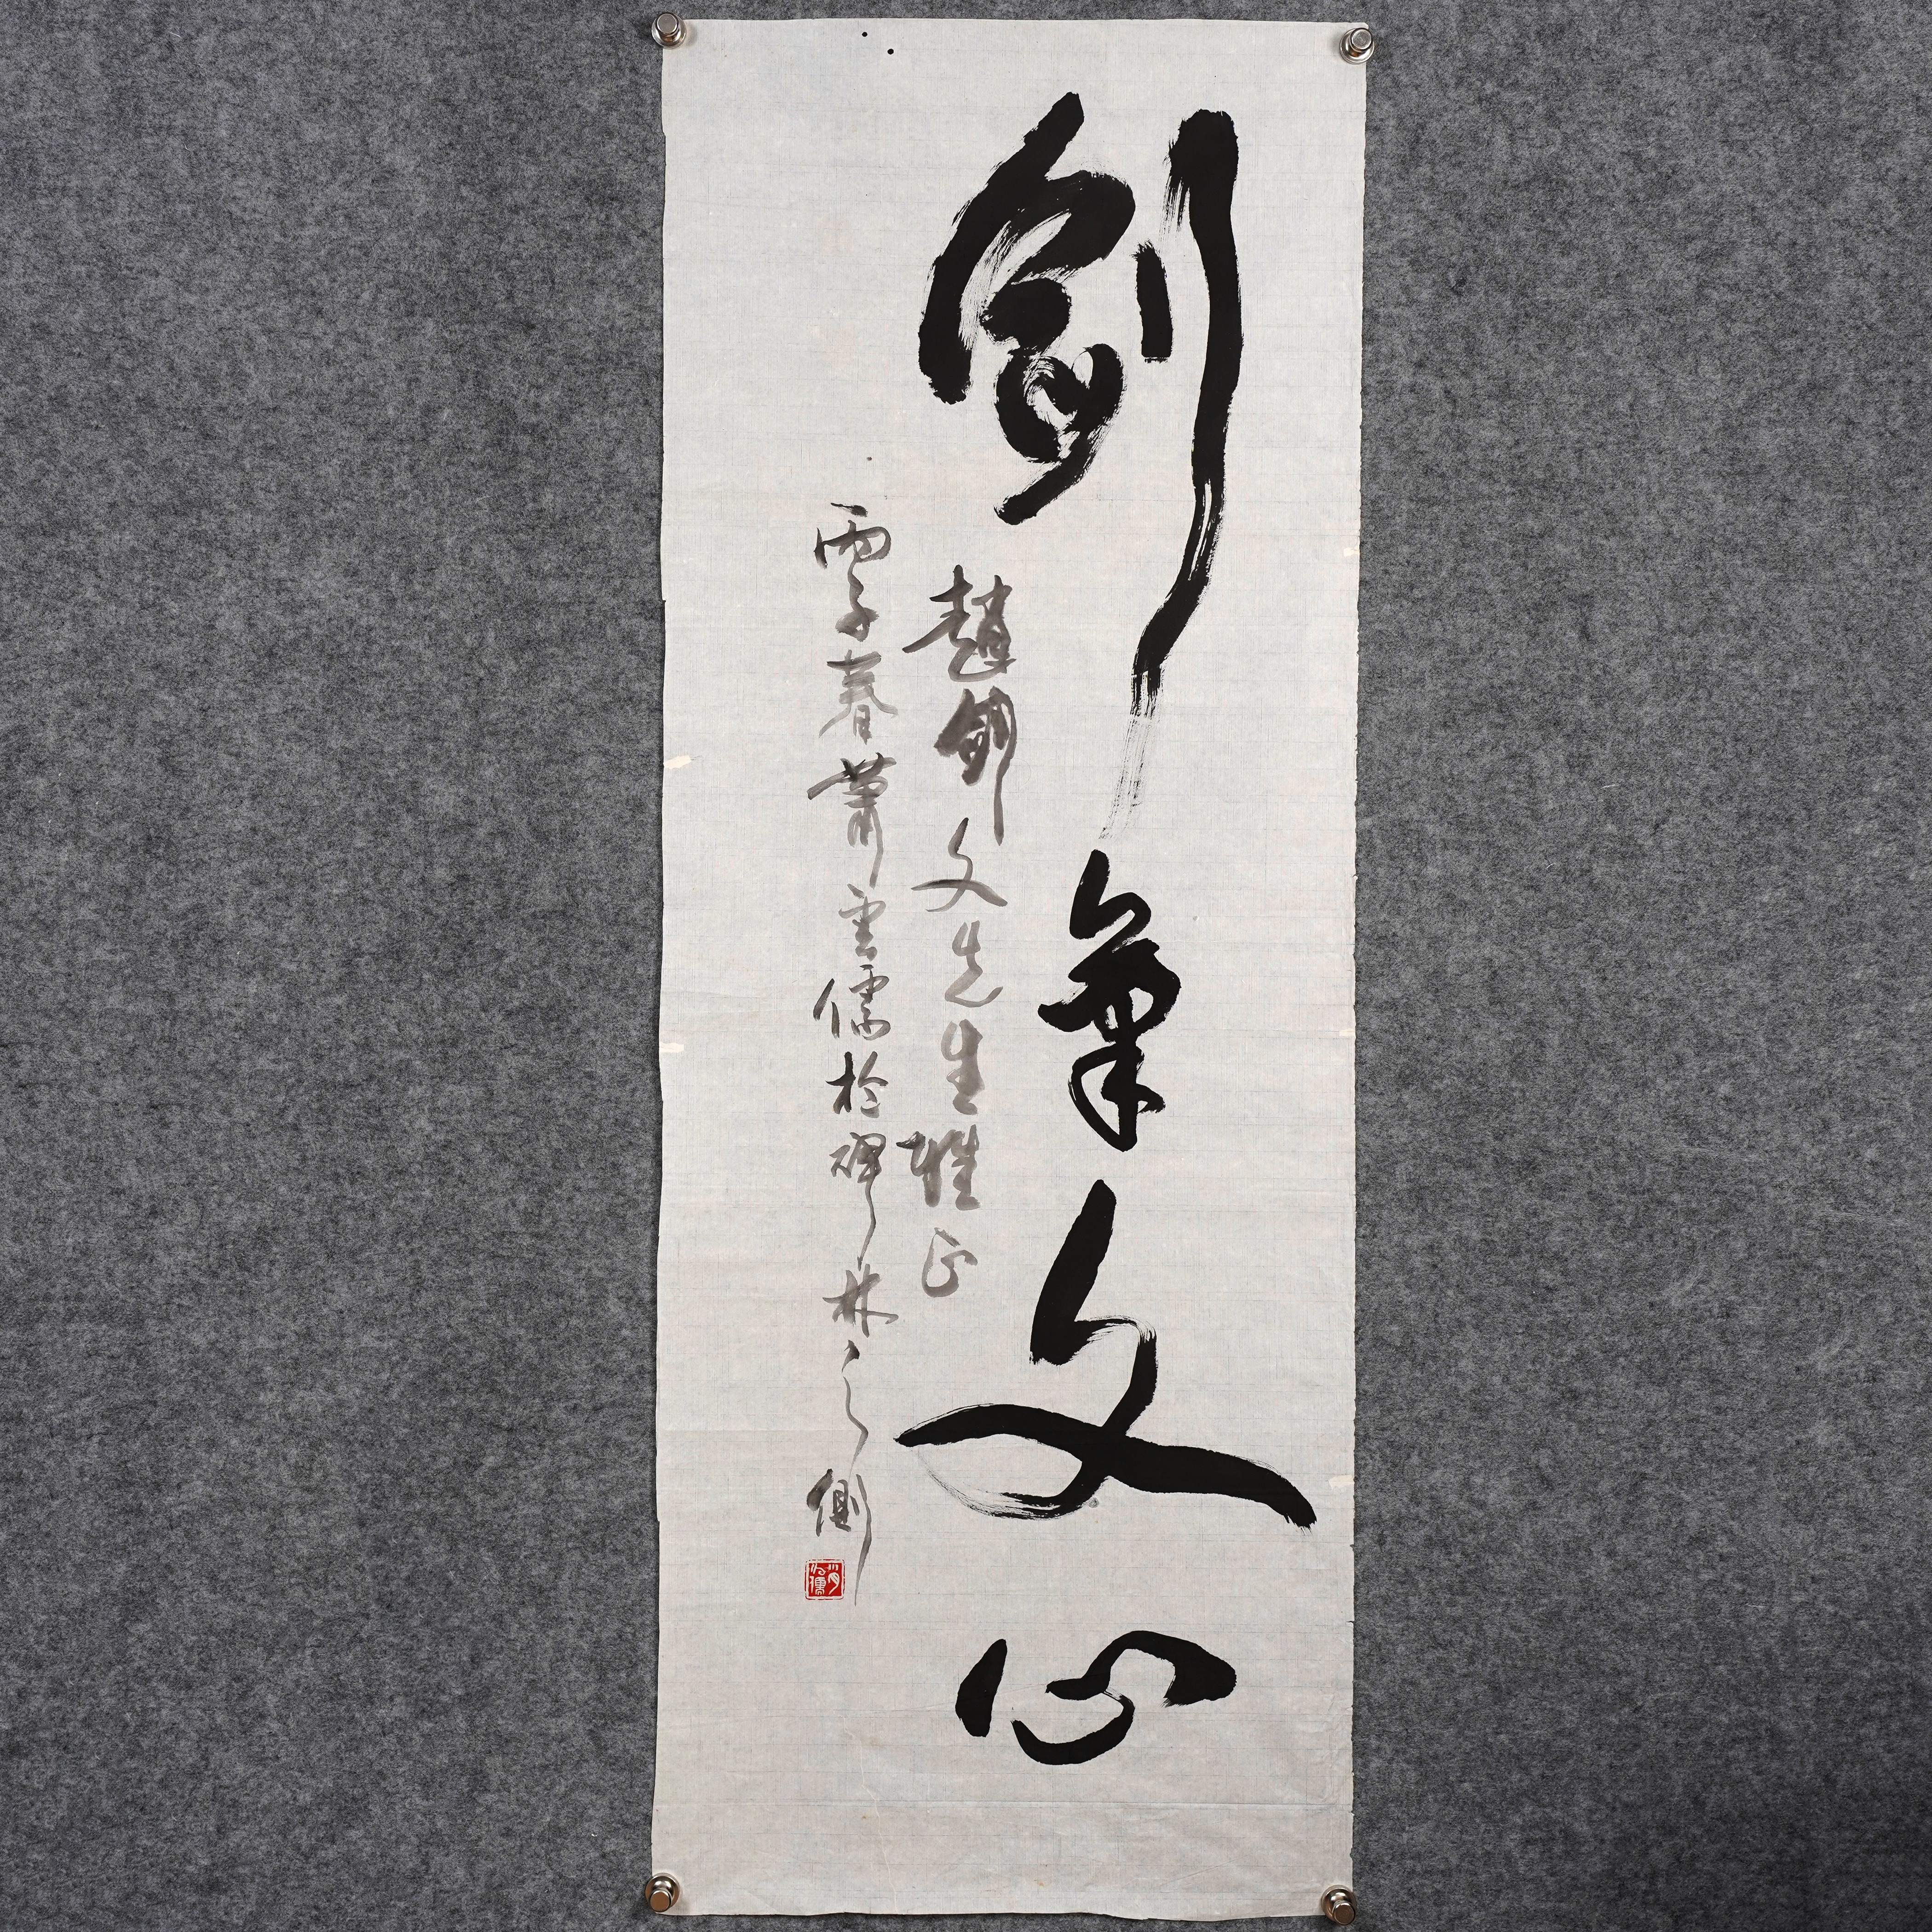 劍氣文心
趙劍文先生雅正
丙子春蕭雲儒於碑林之側